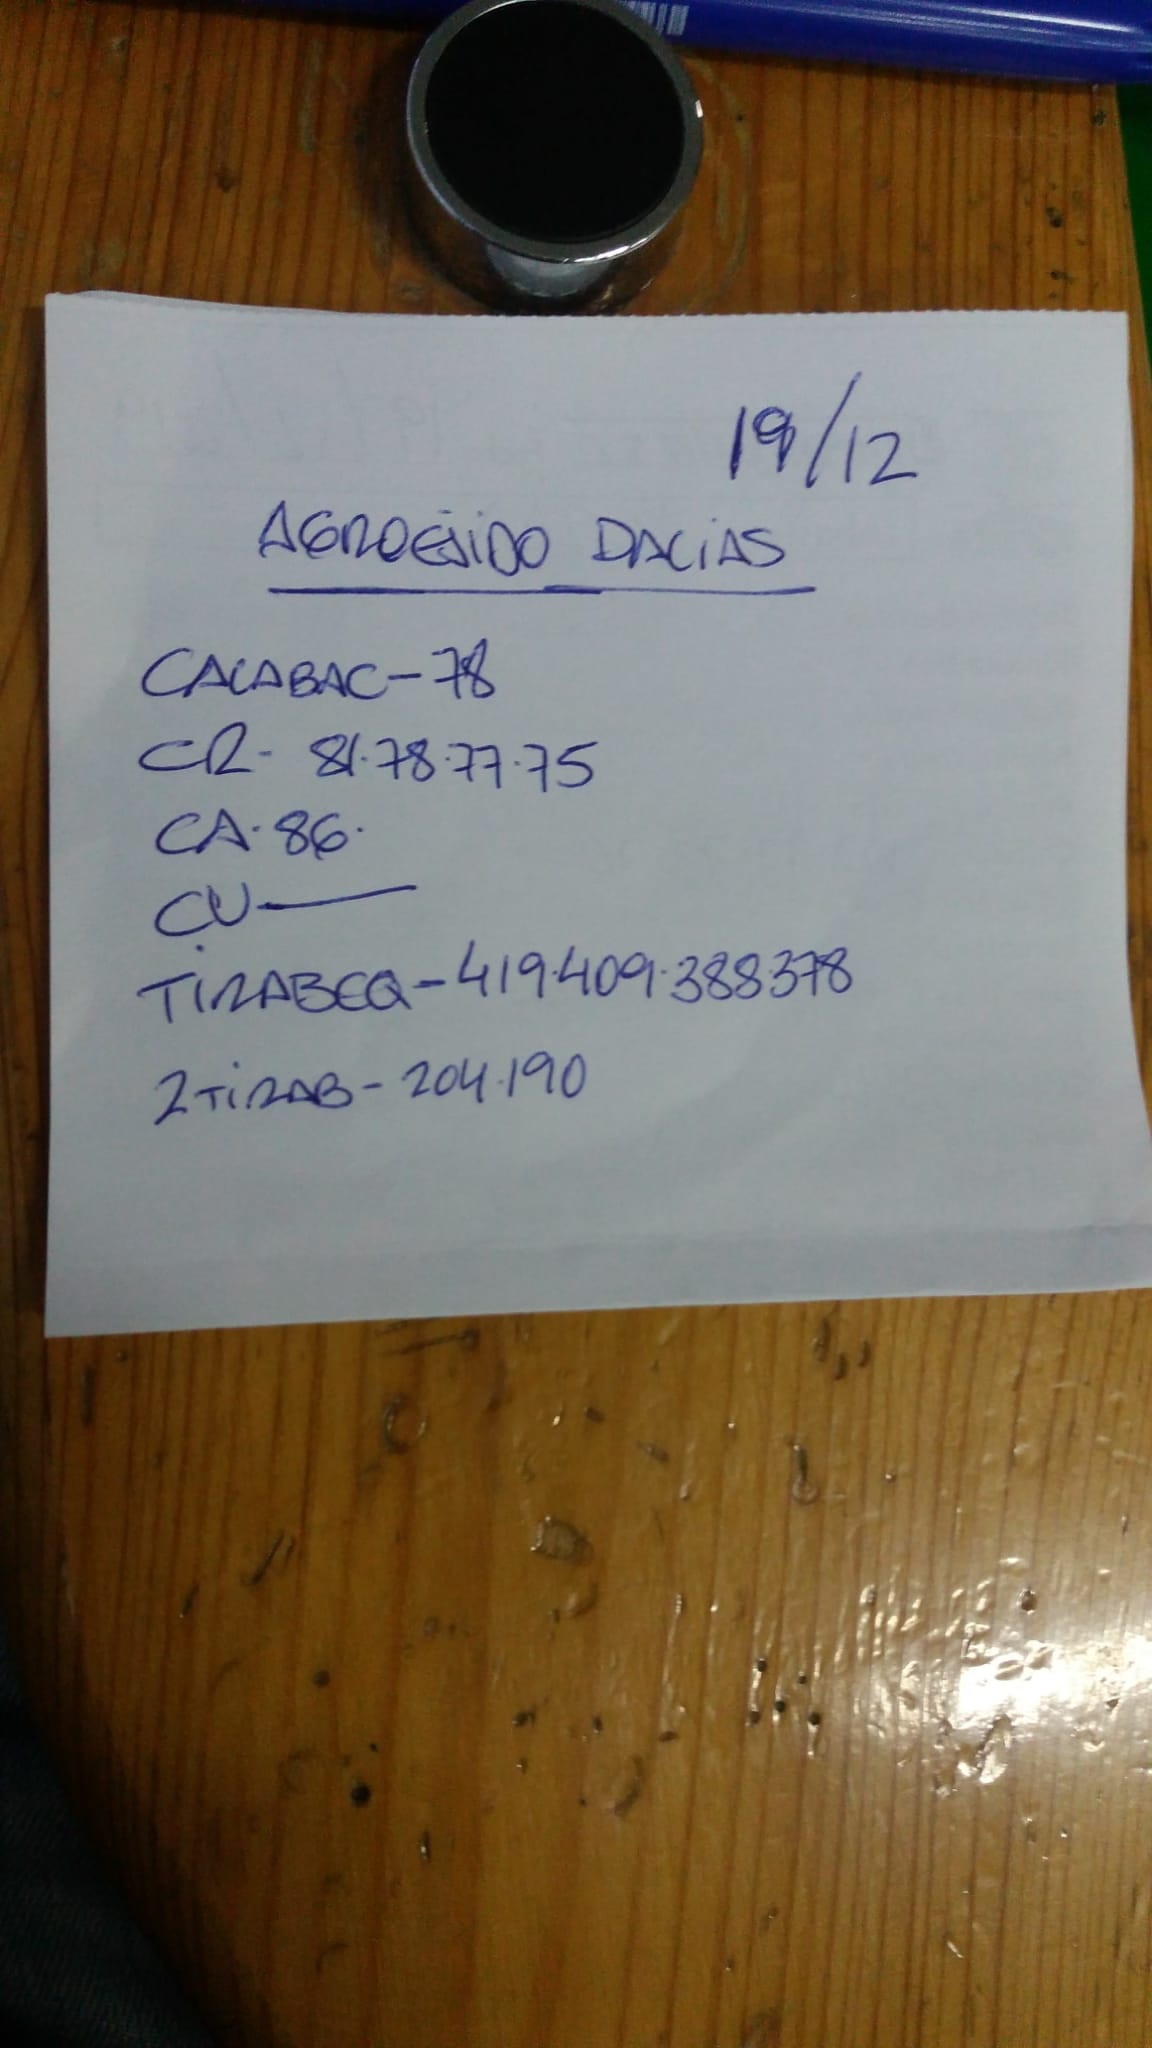 19/12
AGROEJIDO DALIAS
CALABAC-78
CR- 81.78.77.75
CA.86.
CU——
TIRABEQ-419.409.388.378
2TIRAB-204.190